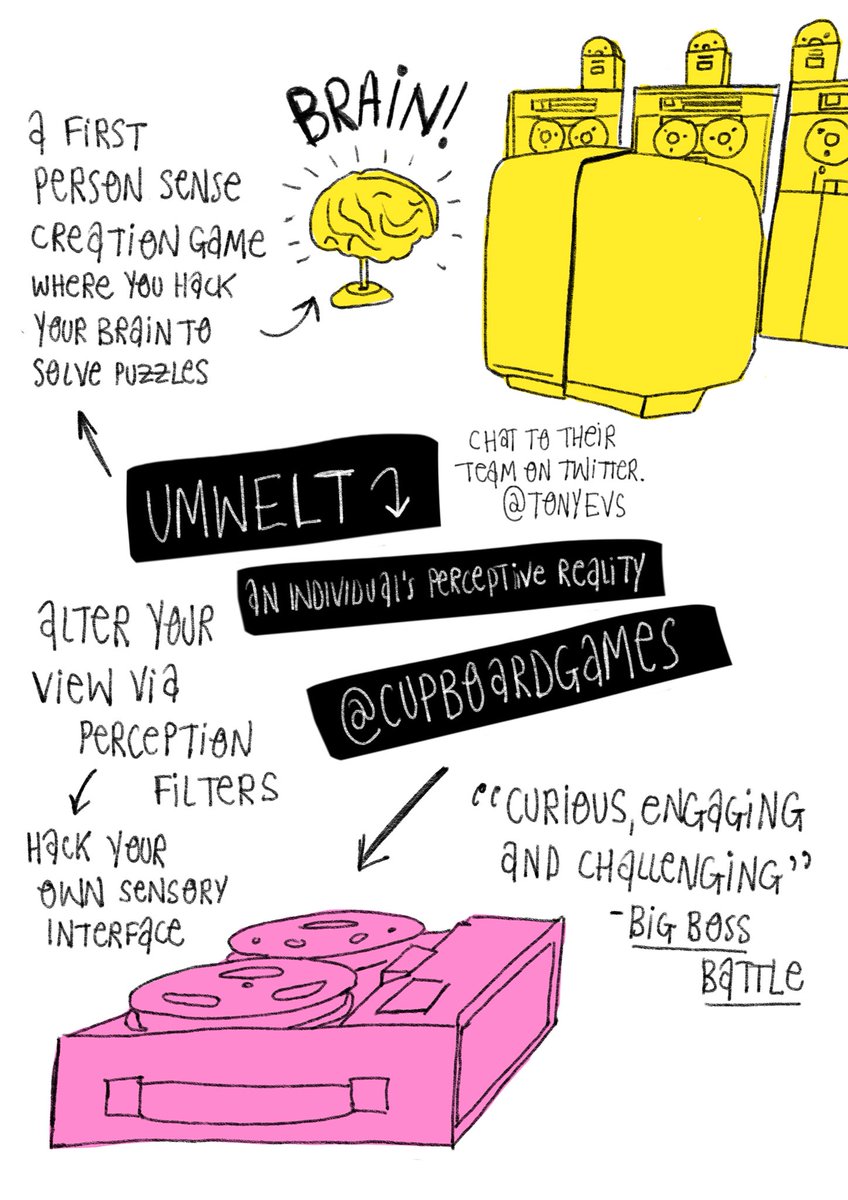 BRAIN!
a FIRST
PERSON SENSE
CREATION GAME
WHERE YOU HACK
YOUR BRAIN TO
SOLVE PUZZLES
CHAT TO THEIR
TEAM ON TWITTER.
@TONYEVS
UMWELT
AN INDIVIDUAL'S PERCEPTIVE REALITY
@CUPBOARDGAMES
ALTER YOUR
VIEW VIA
PERCEPTION
FILTERS
HACK YOUR
OWN SENSORY
INTERFACE
“CURIOUS, ENGAGING
AND CHALLENGING”
-BIG BOSS
BATTLE